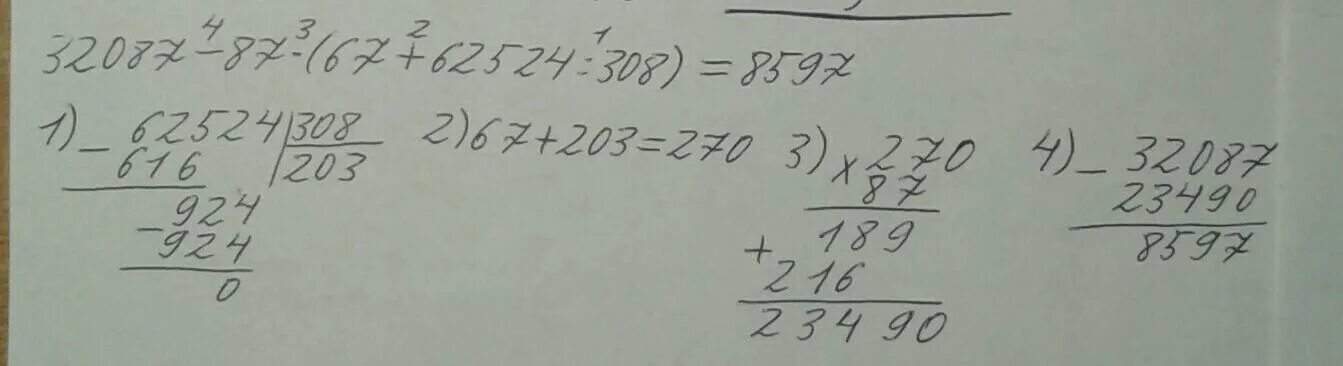 32087-87·(67+62524:308)=8597
4 3 2 1
1) 62524 308 2) 67+203=270 3) 270 4) 32087
- 616 203 x 87 - 23490
924 189 8597
- 924 + 216
0 23490